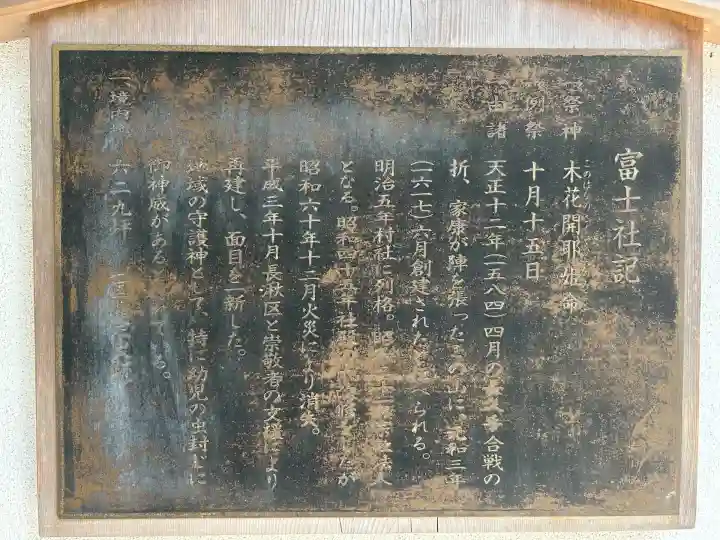 富士社記
祭神 木花開耶姫命
例祭 十月十五日
由諸 天正十二年(一五八四)四月の 合戦の
折、家康が陣を張ったこの山に、元和三年
(一六一七)六月創建されたと られる。
明治五年村社に列格。昭 法人
となる。昭和四十五年社 したが
昭和六十年十二月火災により消失。
平成三年十月長湫区と崇敬者の支援により
再建し、面目を一新した。
地域の守護神として、特に幼児の虫封じに
御神感がある ている。
一、境内 六二九坪